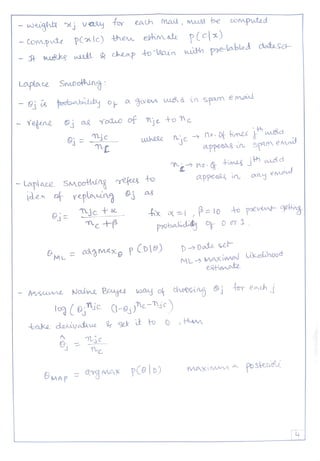 - weights xj vary for each mail, must be computed
- compute p(x|c) then estimate p(c|x)
- It works well & cheap to train with prelabled dataset
Laplace Smoothing:
- θj is probability of a given word in spam email
- refine θj as ratio of njc to nc
θj = njc / nc where njc → no. of times jth word appears in spam email
nc → no. of times jth word appears in any email
- Laplace Smoothing refers to
idea of replacing θj as
θj = njc + α / nc + β fix α = 1, β = 10 to prevent getting probability of 0 or 1.
θML = argmaxθ p(D|θ) D → Data set
ML → Maximal likelihood estimate
- Assume Naive Bayes way of choosing θj for each j
log(θj^njc (1-θj)^nc-njc)
take derivative & set it to 0, then
θ̂j = njc / nc
θMAP = argmax p(θ|D) maximum a posteriori
4